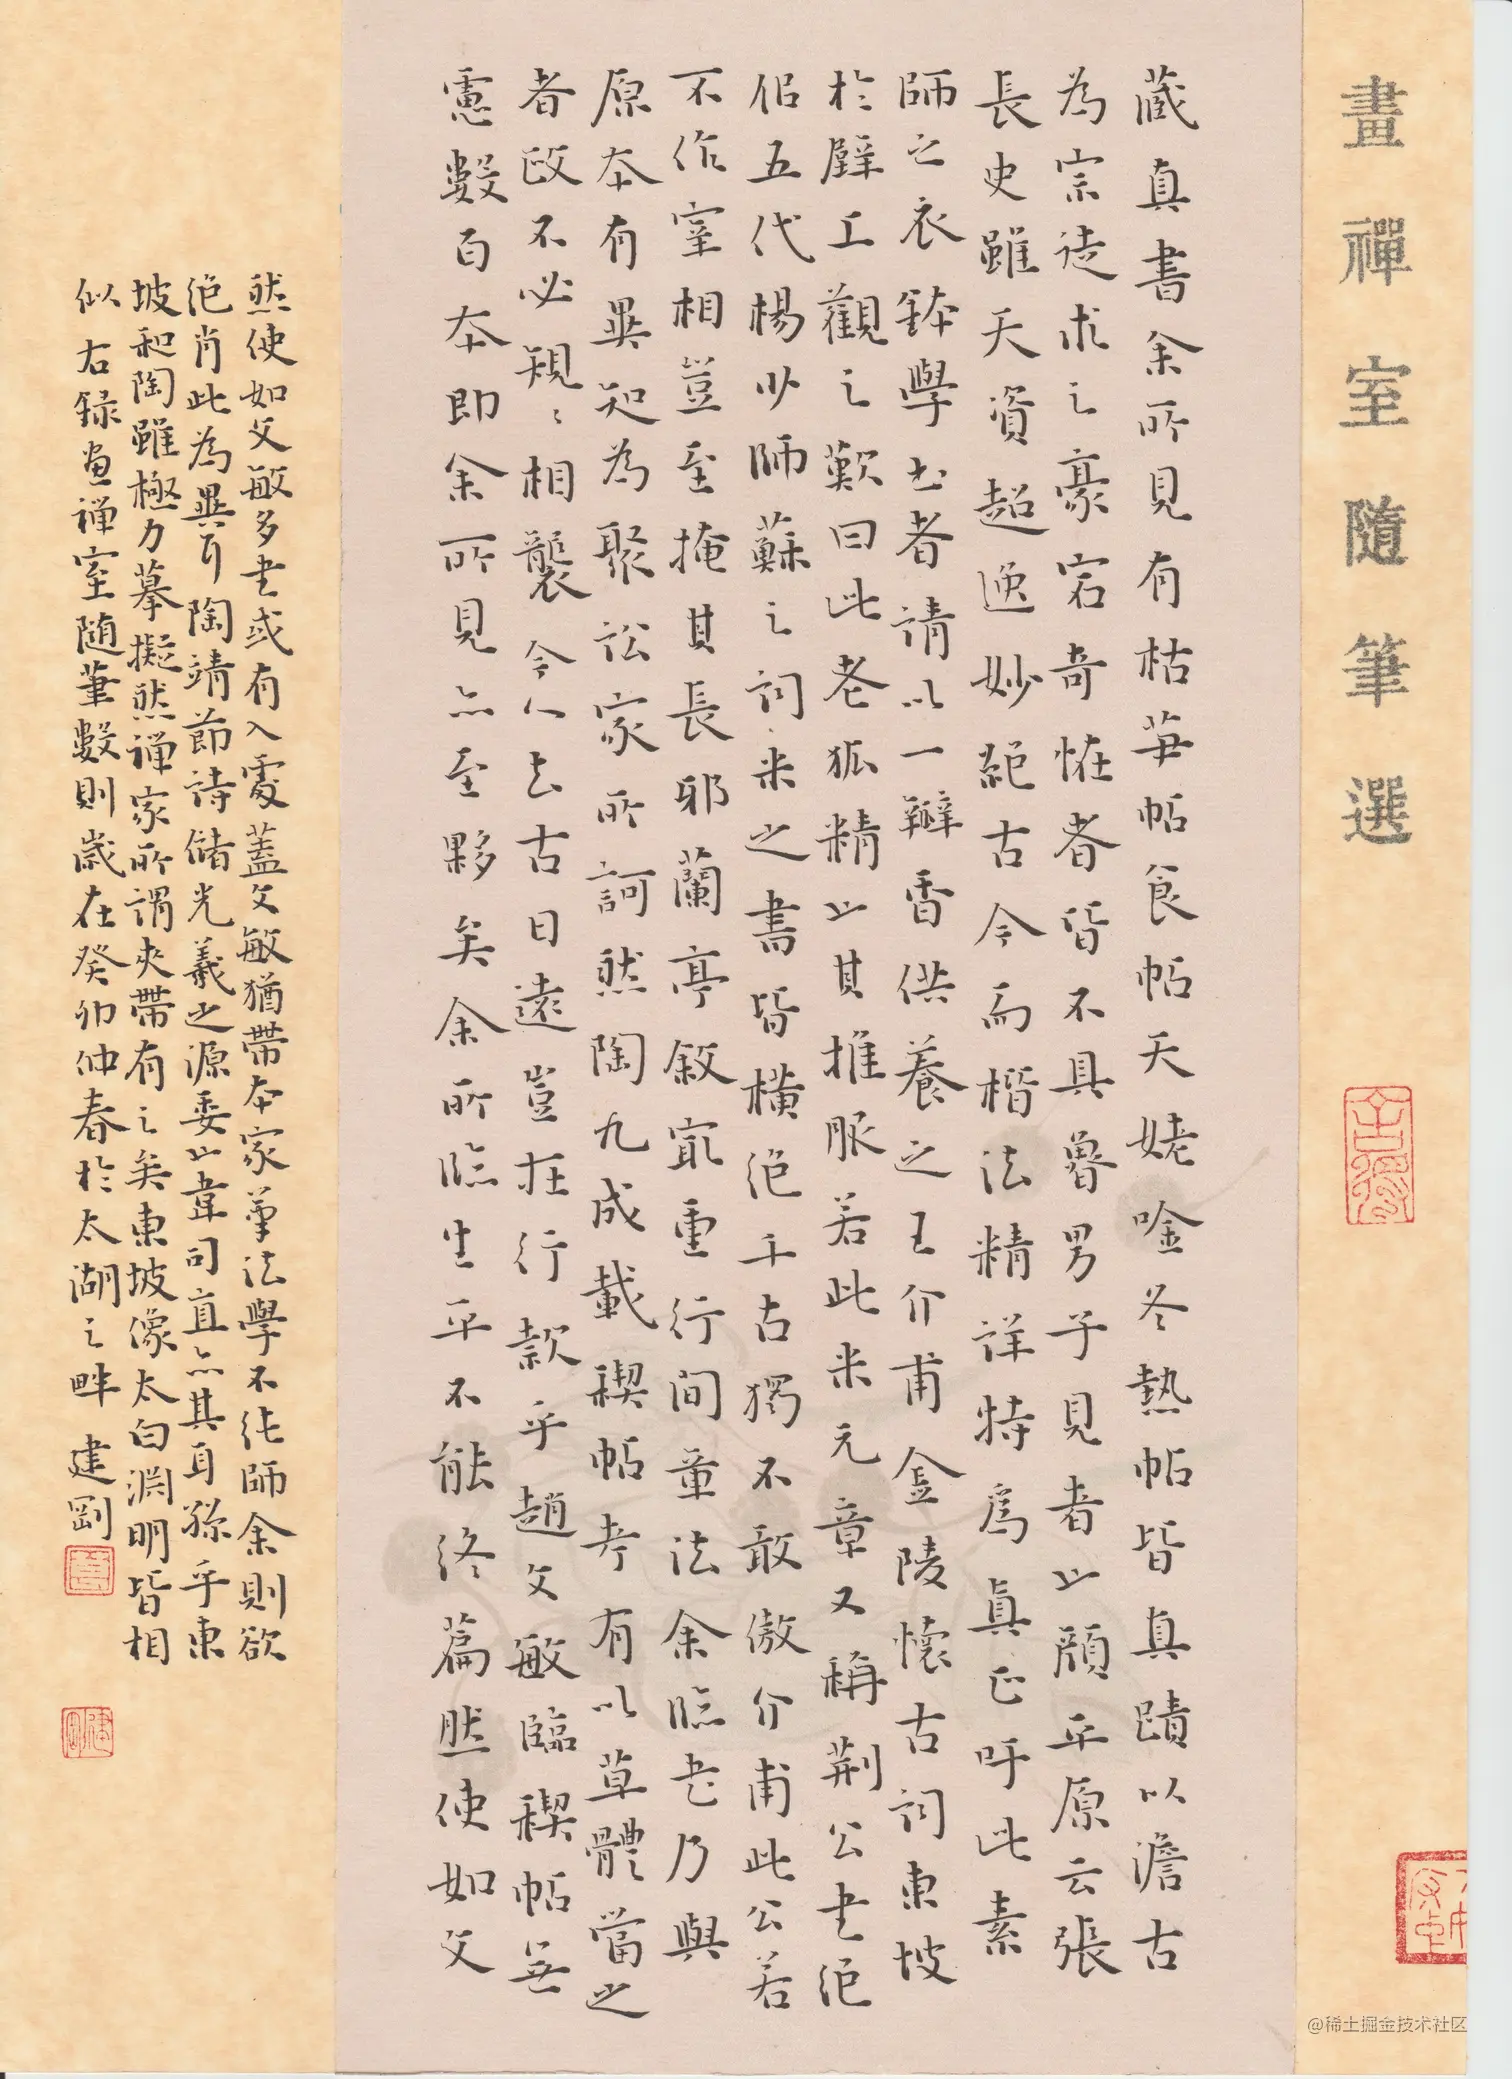 畫禪室隨筆選
藏真書余所見有枯筍帖食帖天姥唫冬熱帖皆真蹟以澹古
為宗徒求之豪宕奇恠者皆不具魯男子見者也顏平原云張
長史雖天資超逸妙絕古今而楷法精詳特為真正吁此素
師之衣鉢學書者請以一瓣香供養之王介甫金陵懷古詞東坡
於壁工觀之歎曰此老狐精也其推服若此米元章又稱荊公書絕
佀五代楊少師蘇之詞米之書皆橫絕千古獨不敢傲介甫此公若
不作宰相豈至掩其長邪蘭亭敘宷重行間章法余臨書乃與
原本有異知為聚訟家所訶然陶九成載禊帖考有以草體當之
者政不必規〻相襲今人去古日遠豈在行款乎趙文敏臨禊帖無
慮數百本即余所見亦至夥矣余所臨生平不能終篇然使如文
然使如文敏多書或有入處蓋文敏猶帶本家筆法學不純師余則欲
絕肖此為異耳陶靖節詩儲光羲之源委也韋司直亦其耳孫乎東
坡和陶雖極力摹擬然禪家所謂夾帶有之矣東坡像太白淵明皆相
似右錄畫禪室随筆數則歲在癸卯仲春於太湖之畔建剛
@稀土掘金技术社区